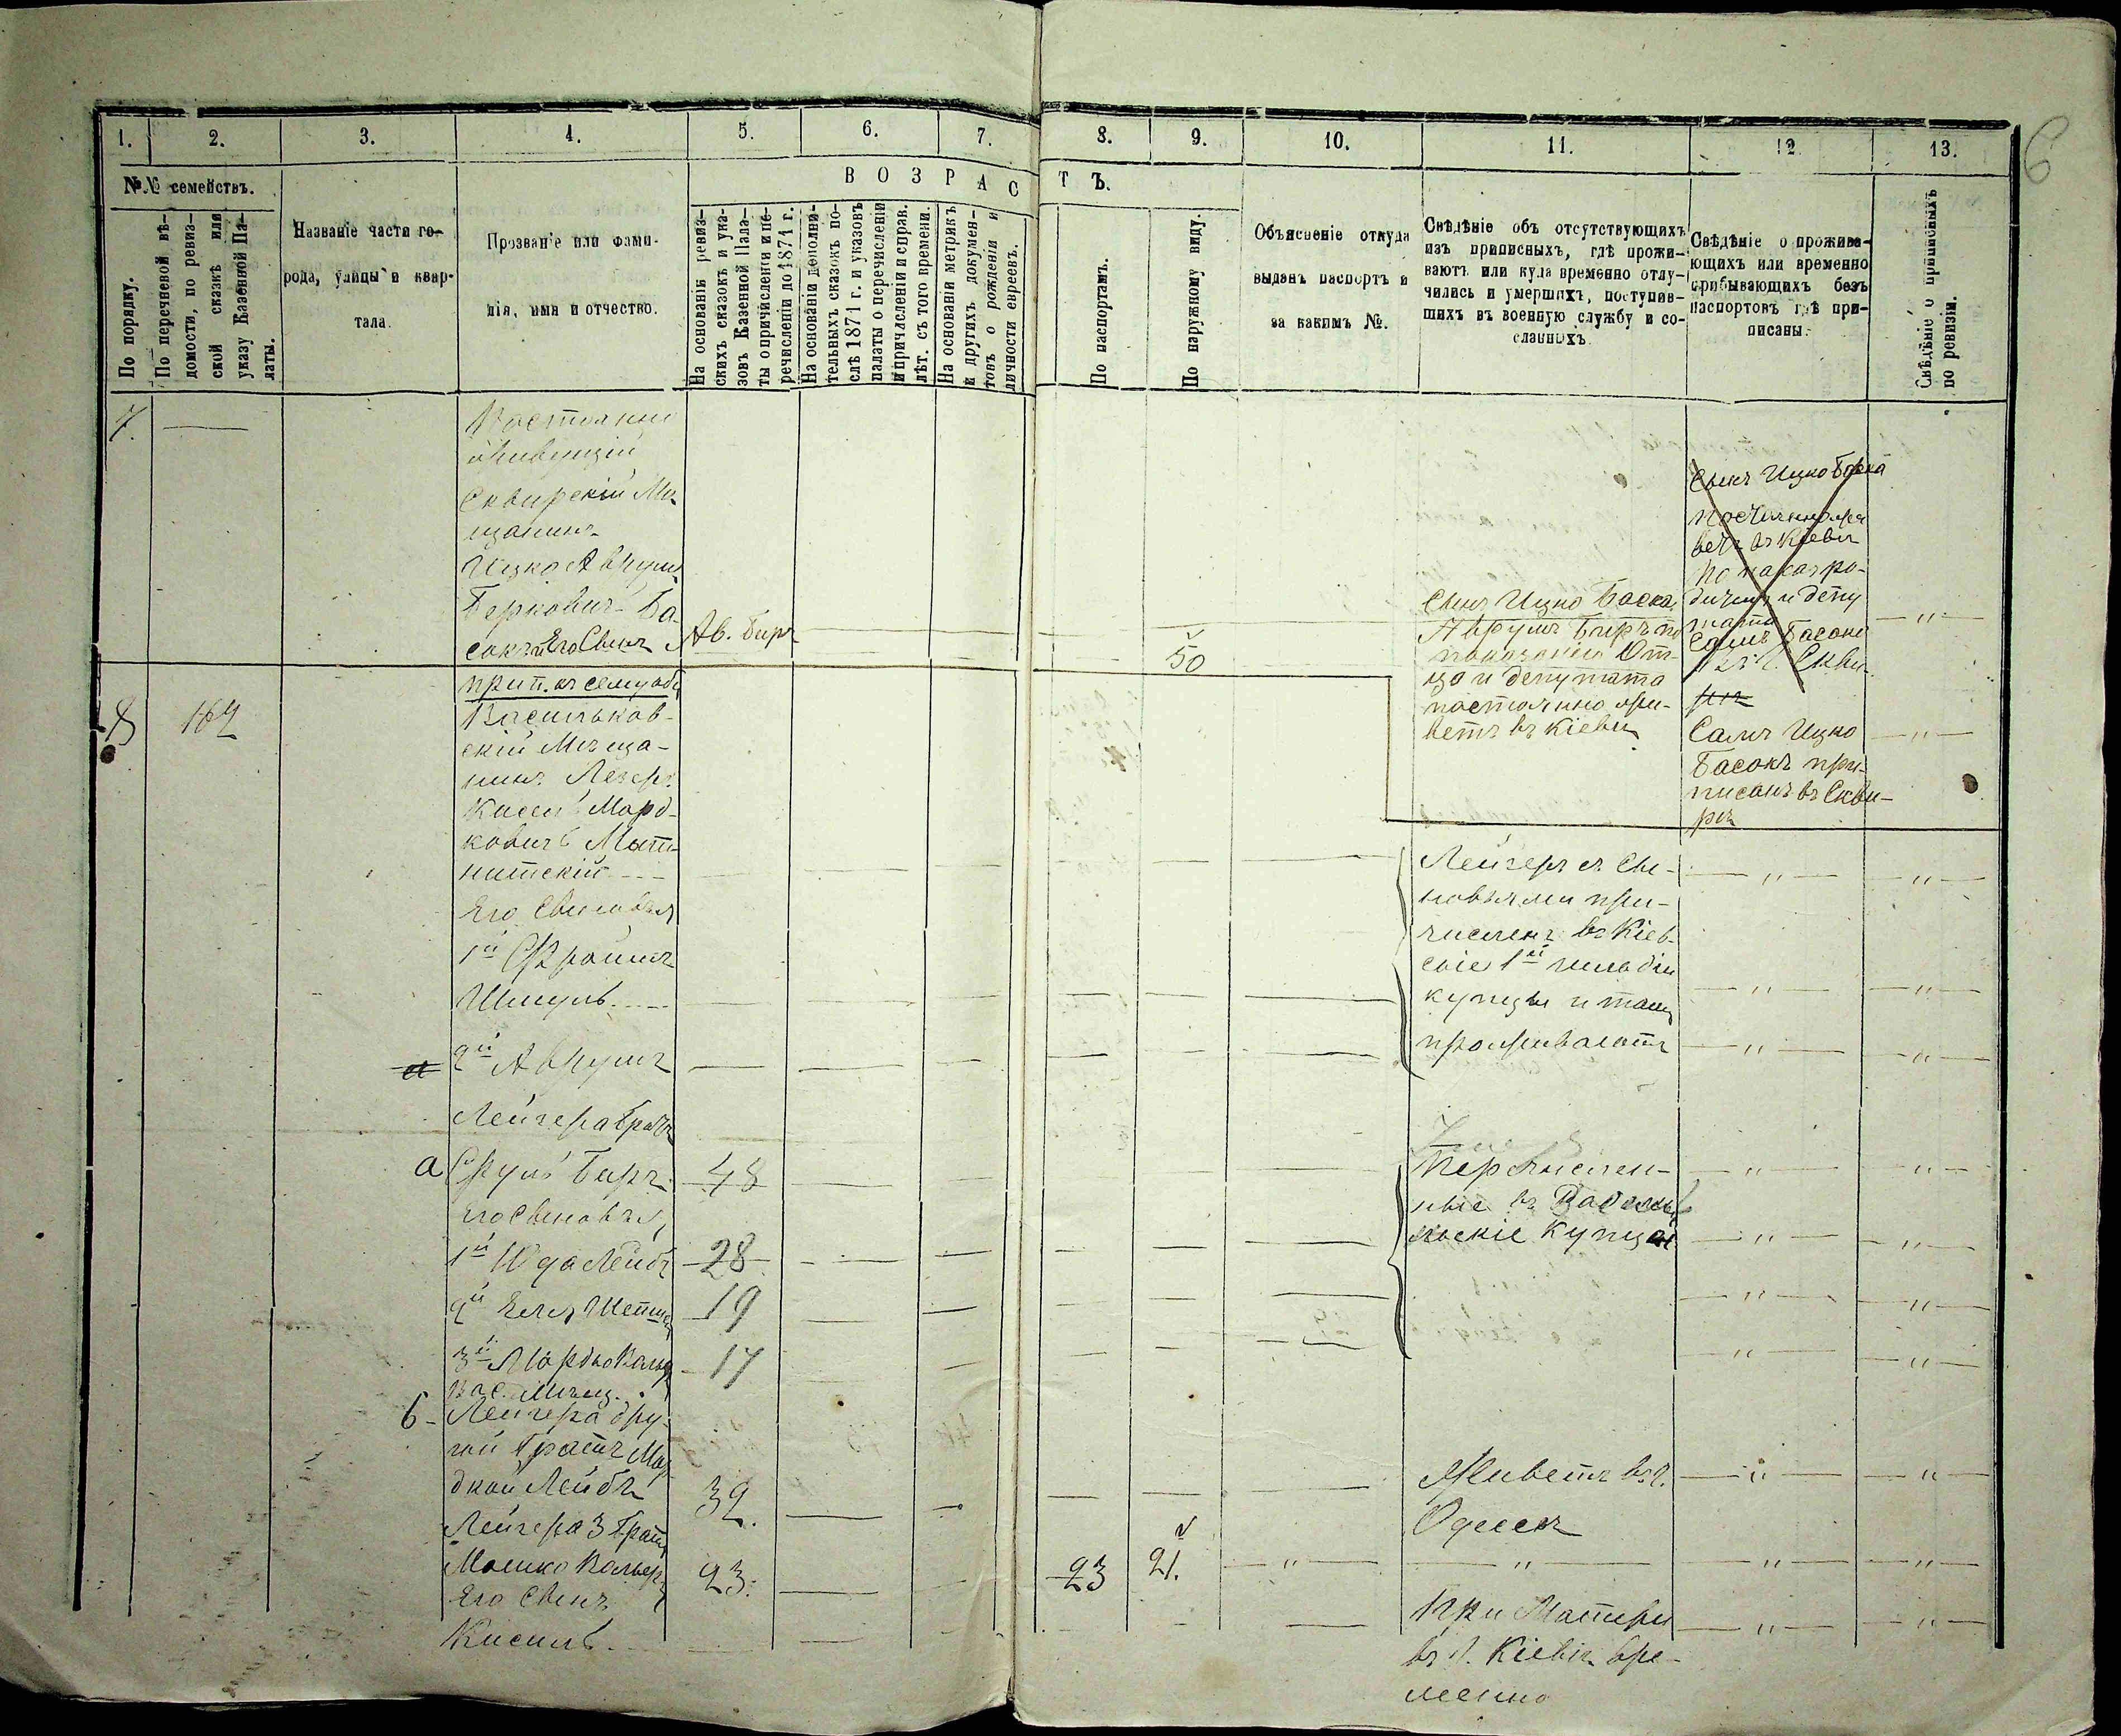 1. 2. 3. 4. 5. 6. 7. 8. 9. 10. 11. 12 13.
6
№№ семействъ.
В О З Р А С Т Ъ.
По порядку.
По перечневой вѣ-
домости, по ревиз-
ской сказкѣ или
указу Казенной Па-
латы.
Названіе части го-
рода, улицы и квар-
тала.
Прозваніе или фами-
лія, имя и отчество.
На основаніи ревиз-
скихъ сказокъ и ука-
зовъ Казенной Пала-
ты о причисленіи и пе-
речисленіи до 1871 г.
На основаніи дополни-
тельныхъ сказокъ по-
слѣ 1871 г. и указовъ
палаты о перечисленіи
и причисленіи и справ.
лѣт. съ того времени.
На основаніи метрикъ
и другихъ докумен-
товъ о рожденіи и
личности евреевъ.
По паспортамъ.
По наружному виду.
Объясненіе откуда
выданъ паспортъ и
за какимъ №.
Свѣдѣніе объ отсутствующихъ
изъ приписныхъ, гдѣ прожи-
ваютъ или куда временно отлу-
чились и умершихъ, поступив-
шихъ въ военную службу и со-
сланныхъ.
Свѣдѣніе о прожива-
ющихъ или временно
прибывающихъ безъ
паспортовъ гдѣ при-
писаны.
Свѣдѣніе о приписныхъ
по ревизіи.
7.
Постоянно
живущій
Сквирскій Мѣ
щанинъ
Ицко Аврумъ
Берковичъ Ба-
сокъ и Его Сынъ Ав. Беръ
50
Сынъ Ицко Баска
Аврумъ Беръ по
показанію От-
ца и депутата
постоянно жи-
ветъ въ Кіевѣ
Сынъ Ицко Баска
постоянно жи
ветъ въ Кіевѣ
по показ ро-
дичей и депу
тата
Самъ Басокъ
въ г. Скви-
рѣ
Самъ Ицко
Басокъ при-
писанъ въ Скви-
рѣ
прип. къ семуоб
8 164
Васильков-
скій Мѣща-
нинъ Лезеръ
Кисель Мард-
ковичъ
Его Сыновья
1й Фроимъ
Шмуль
2й Аврумъ
Лейзеръ съ Сы-
новьями при-
численъ въ Кіев-
скіе 1й гильдіи
купцы и тамъ
проживаютъ
Лейзера братъ
а Сруль Беръ 48
его Сыновья,
1й Юда Лейбъ 28
2й 19
3й Мардко 17
Перечислен-
ные въ Василь
ковскіе Купцы
Вас. Мѣщ.
б - Лейзера дру-
гой братъ Мар
дкой Лейбъ 39.
Живетъ въ г.
Одессѣ
Лейзера 3 братъ
Мошко 23. 23 21.
Его Сынъ
Кисиль
При Матери
въ г. Кіевѣ вре-
менно